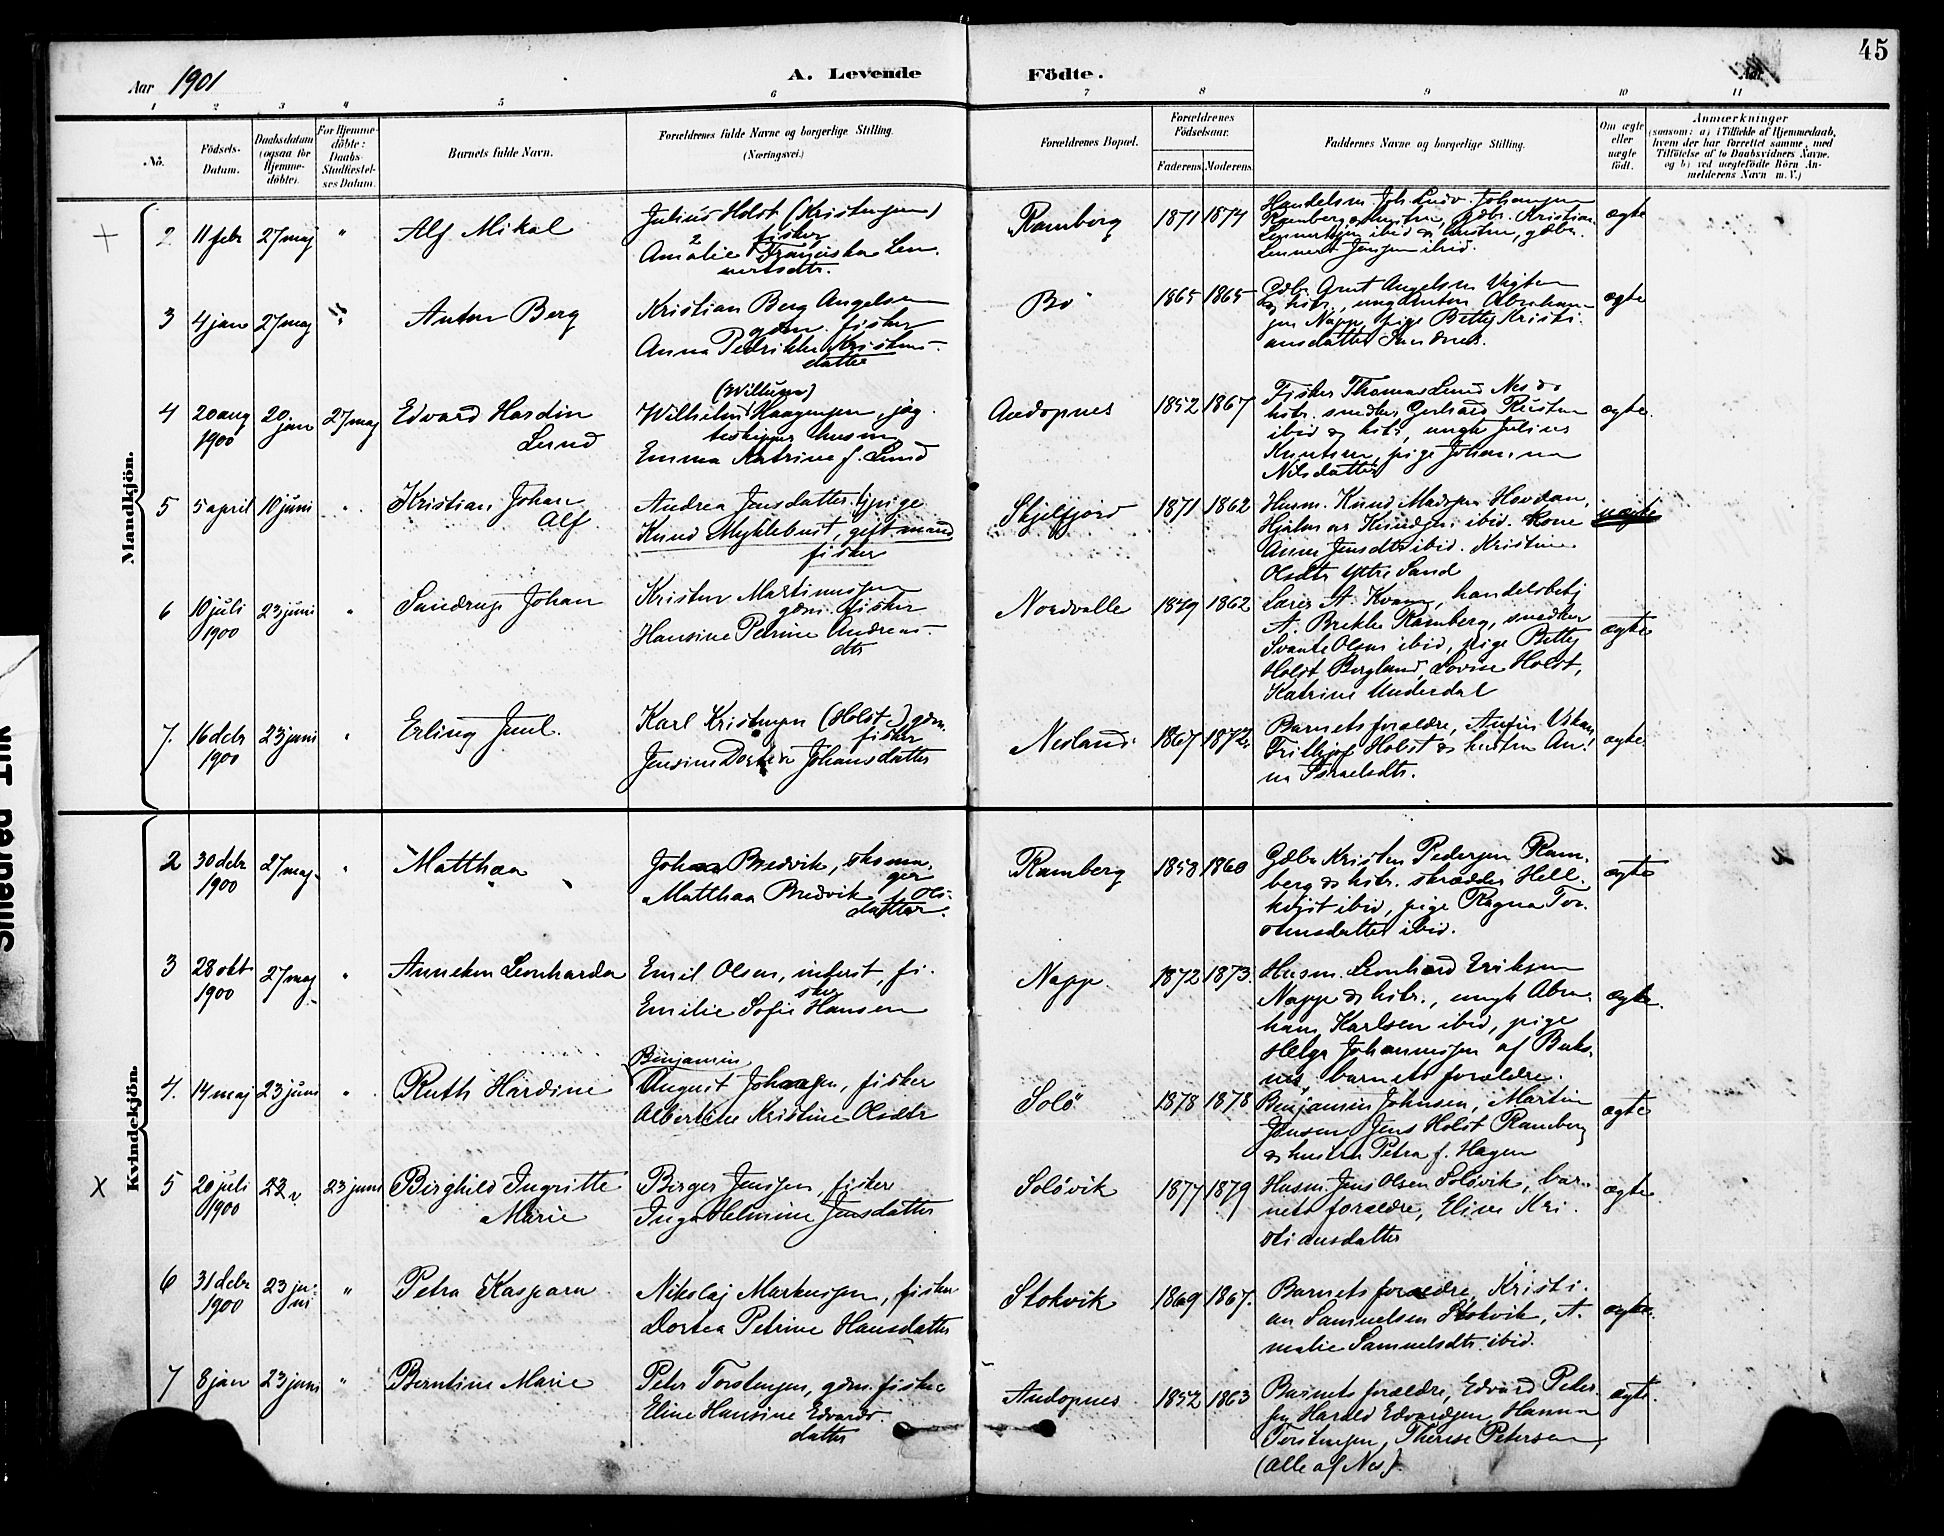 45
Aar 1901
A. Levende Födte.
1 2 3 4 5 6 7 8 9 10 11
No.
Födsels-
Datum.
Daabsdatum
(ogsaa for
Hjemme-
döbte).
For Hjemme-
döbte:
Daabs-
Stadfæstel-
ses Datum.
Barnets fulde Navn.
Forældrenes fulde Navne og borgerlige Stilling.
(Næringsvei.)
Forældrenes Bopæl.
Forældrenes
Födselsaar.
Faderens Moderens
Faddernes Navne og borgerlige Stilling.
Om ægte
eller
uægte
födt.
Anmærkninger
(saasom: a) i Tilfælde af Hjemmedaab,
hvem der har forrettet samme, med
Tilföielse af to Daabsvidners Navne.
og b) ved uægtefödte Börn An-
melderens Navn m. V.)
Mandkjön.
2 11 febr 27 maj " Alf Mikal
Julius Holst (Kristensen)
fisker
Amalie Franciska Len-
nertsdtr.
Ramberg 1871 1874
Handelsm. Joh. Ludv. Johansen
Ramberg & hustru, gdbr. Kristian
Lennertsen ibid & hustru, gdbr.
Lennert Jensen ibid.
ægte
3 4 jan 27 maj " Anton Berg
Kristian Berg Angelsen
gdm. fisker
Anna Pedrikke Kristens-
datter
Bö 1865 1865
Gdbr. Arnt Angelsen Vigten
& hstr., ungk Anton Abraham-
sen Napp, pige Betty Kristi-
ansdatter Sandnes.
ægte
4 20 aug 1900 20 jan 27 maj Edvard Hardin
Lund
Wilhelm Haagensen, jæg-
teskipper husm
Emma Katrine f. Lund
Andopnes 1852 1867
Fisker Thomas Lund Nes &
hstr. snedker Gerhard Rusten
ibid & hstr, ungk Julius
Knutsen, pige Johanna
Nilsdatter
ægte.
5 5 april 10 juni " Kristian Johan
Alf
Andrea Jensdatter, pige
Knud Myklebust, gift mand
fisker
Skjelfjord 1871 1862
Husm. Knud Madsen Hovdan,
Hjalmar Knudsen ibid. kone
Anna Jensdtr ibid. Kristine
Olsdtr Ytre Sand
uægte
6 10 juli 1900 23 juni " Sandrup Johan
Kristen Martinussen
gdm. fisker
Hansine Petrine Andreas-
dtr
Nordvalle 1849 1862
Lærer A. Kvam, handelsbetj
A. Brekke Ramberg, snedker
Svante Olsen ibid, pige Betty
Holst Bergland, Lovise Holst,
Katrine Underdal
ægte
7. 16 debr 1900 23 juni " Erling Juul.
Karl Kristensen (Holst) gdm.
fisker
Jensine Dortea Johansdatter
Nesland 1867 1872
Barnets forældre, Anfin Vikan,
Fridtjof Holst & hustru An-
na Israelsdtr.
ægte
Kvindekjön.
2 30 debr 1900 27 maj " Matthea
Johan Bredvik, skoma-
ger
Matthea Bredvik f. Ols-
datter.
Ramberg 1853 1860
Gdbr Kristen Pedersen Ram-
berg & hstr. skrædder Hell-
kvist ibid, pige Ragna Tor-
stensdatter ibid.
ægte
3 28 okt 1900 27 maj " Anneken Leonharda
Emil Olsen, inderst, fi-
sker
Emilie Sofie Hansen
Napp. 1872 1873
Husm. Leonhard Eriksen
Napp & hstr., ungk Abra-
ham Karlsen ibid, pige
Helga Johannessen af Buks-
nes, barnets forældre.
ægte.
4. 14 maj 23 juni " Ruth Hardine
Benjamin
August Johnsen, fisker
Albertine Kristine Olsdtr
Solö 1878 1878
Benjamin Johnsen, Martin
Jensen, Jens Holst Ramberg
& hustru Petra f. Hagen
ægte
5 20 juli 1900 23 juni Birghild Ingritte
Marie
Birger Jenssen, fisker
Inga Helmine Jensdatter
Solövik 1877 1879
Husm. Jens Olsen Solövik, bar-
nets forældre, Elise Kri-
stiansdatter
ægte
6 31 debr 1900 23 ju-
ni " Petra Kaspara
Nikolaj Markussen, fisker
Dortea Petrine Hansdatter
Stokvik 1869 1867.
Barnets forældre, Kristi-
an Samuelsen Stokvik, A-
malie Samuelsdtr. ibid.
ægte.
7 8 jan 23 juni " Berntine Marie
Peter Torstensen, gdm. fisker
Eline Hansine Edvards-
datter
Andopnes 1852 1863
Barnets forældre, Edvard Peter-
sen, Harald Edvardsen, Hanna
Torstensen, Therese Petersen,
(alle af Nes).
ægte.